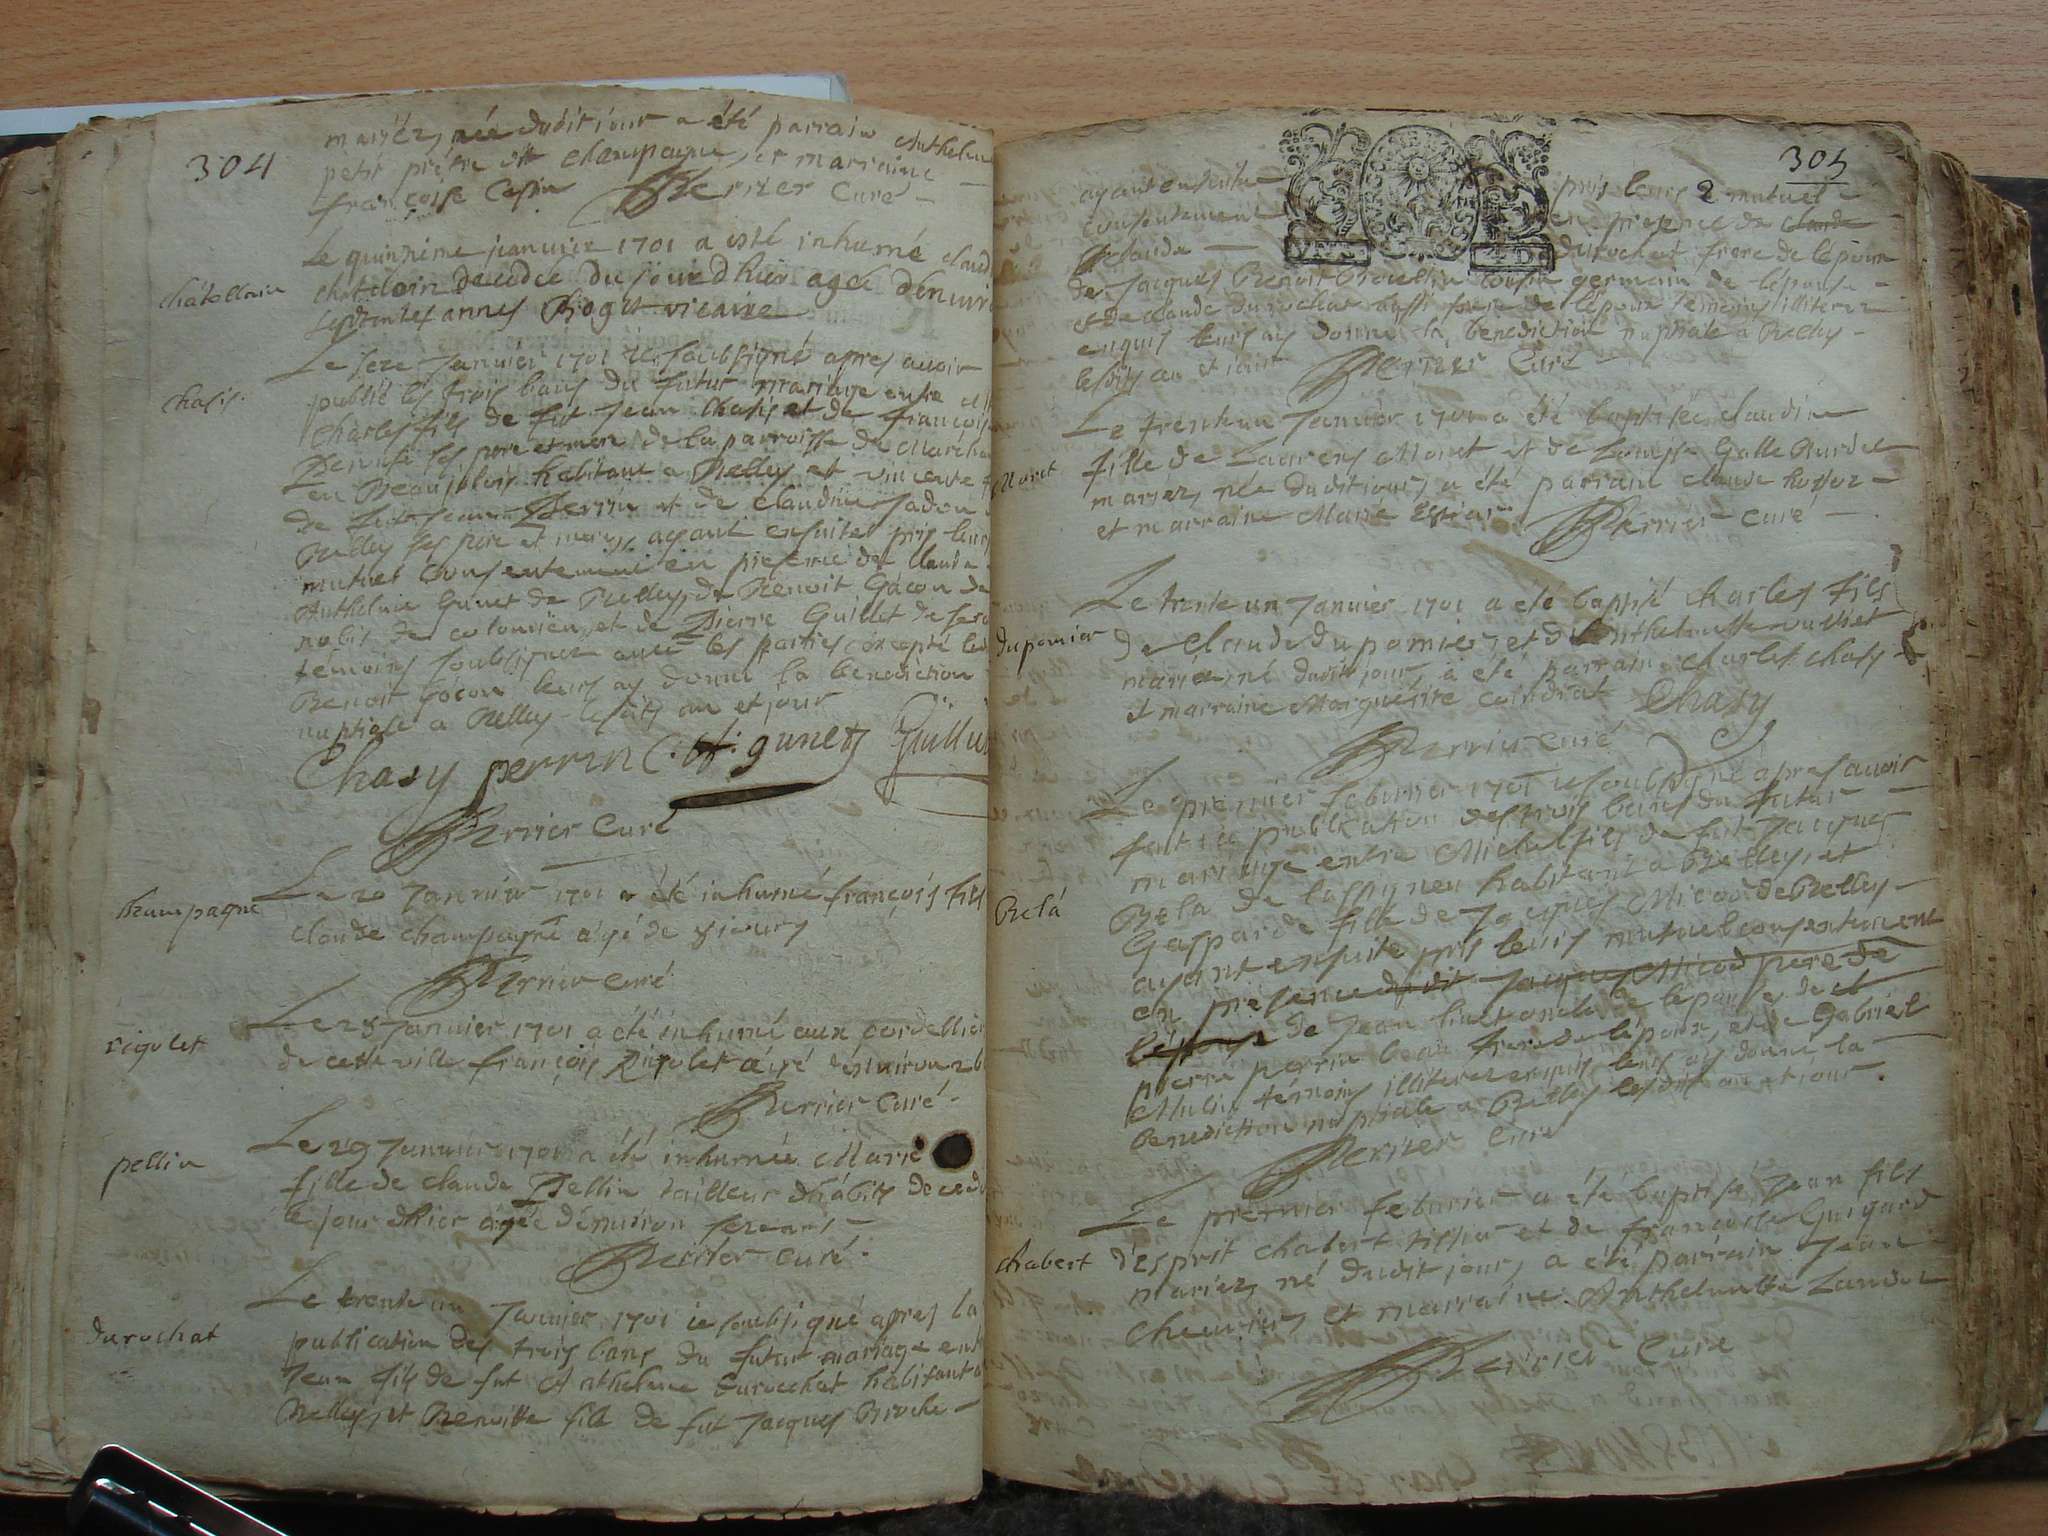 304
mariéz, née dudit jour a été parrain Anthelme
petit prêtre de champagne, et marraine
françoise Perrier Curé
châtellain
Le quinzieme janvier 1701 a esté inhumé claud
chateloin decedée du jour d'hier agé d'envir
septentes annes Rogit vicaire
chasis
Le seze Janvier 1701 ie soubsigné apres avoir
publié les trois bans du futur mariage entre
Charles fils de fut Jean Chasis et de françoise
ses pere et mere de la parroisse de Marcha
en Beaujolois habitant a Belley et vincente f
de fut Jean Perrin et de Claudine Jadou
Belley ses pere et mere, ayant ensuite pris leurs
mutuel consentement en presence de Claude
Anthelme Gunet de Belley, de Benoit Gacon de
de colomieu, et de Pierre Guillet de
temoins soubsignez avec les parties excepté led
Benoit Gacon leurs ay donné la benediction
nuptiale a Belley lesdits an et jour
Chasy perrin C. A. gunet Guillet
Perrier Curé
Champagne
Le 20 Janvier 1701 a été inhumé françois fils
claude champagne agé de 8 jours
Perrier Curé
rigolet
Le 28 Janvier 1701 a été inhumé aux cordellier
de cette ville françois Rigolet agé d'environ
Perrier Curé
pellin
Le 29 Janvier 1701 a été inhumée Marie
fille de claude Pellin tailleur d'habits decedé
le jour d'hier agée d'environ seze ans
Perrier Curé
durochat
Le trente un Janvier 1701 ie soubsigné apres la
publication des trois bans du futur mariage ent
Jean fils de fut Anthelme durochat habitant a
Belley, et Benoitte fille de fut Jacques Broche
305
ayant ensuite pris leurs 2 mutuel
consentement en presence de claude
Claude durochat frere de lepoux
de Jacques Benoit cousin germain de l'épouse
et de claude durochat aussi frere de l'époux temoins illiterez
enquis leurs ay donné la benediction nuptiale a Belley
lesdits an et jour Perrier Curé
Moret
Le trente un Janvier 1701 a été baptisée claudine
fille de Laurens Moret et de Louise Galle
mariéz, née dudit jour, a été parrain claude
et marraine Marie Perrier curé
dupomier
Le trente un Janvier 1701 a été baptisé charles fils
de claude du pomier, et d'Anthelmette
mariez, né dudit jour, a été parrain charles chasy
et marraine Marguerite Chasy
Perrier curé
Belá
Le premier febvrier 1701 ie soubsigné apres avoir
fait la publication des trois bans du futur
mariage entre Michel fils de fut Jacques
Bela de lassigneu habitant a Belley, et
Gasparde fille de Jacques Micod de Belley
ayant ensuite pris leurs mutuel consentement
en presence dudit Jacques Micod pere de
l'épouse de Jean oncle de lepouse, de
pierre perrin beau frere de lépoux, et de Gabriel
Mulin témoins illiterez enquis leurs ay donné la
benediction nuptiale a Belley lesdit an et jour.
Perrier Curé
chabert
Le premier febvrier a été baptisé Jean fils
d'esprit chabert tissier et de françoise Guigard
mariez, né dudit jour, a été parrain Jean
et marraine Anthelmette
Perrier Curé